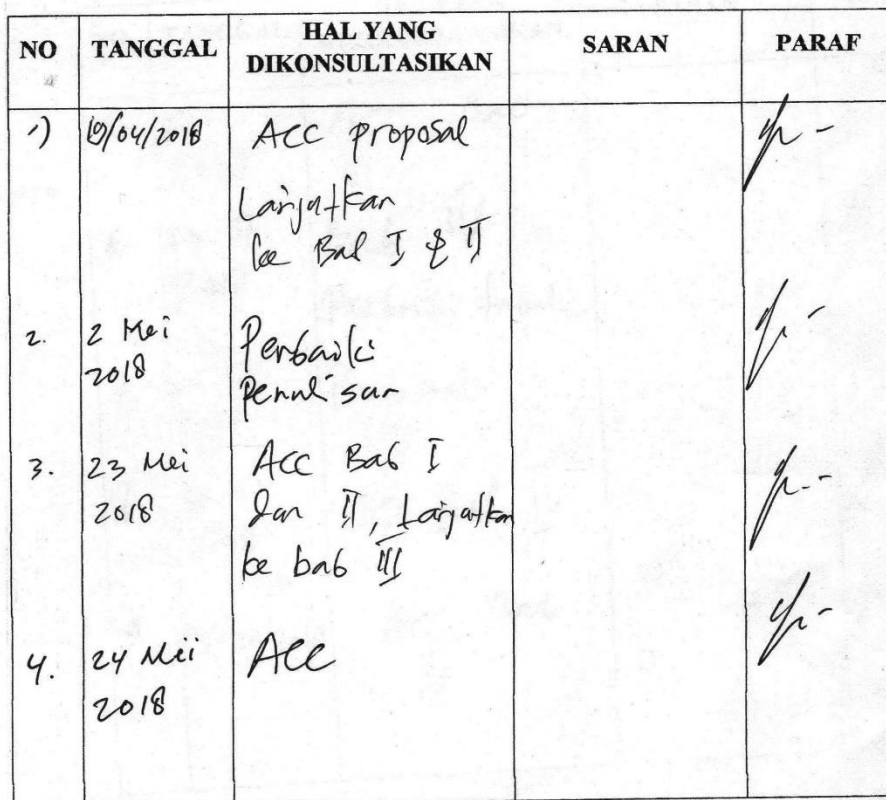 NO TANGGAL HAL YANG DIKONSULTASIKAN SARAN PARAF
1) 19/04/2018 Acc proposal
Lanjutkan
ke Bab I & II
2. 2 Mei 2018 Perbaiki
Penulisan
3. 23 Mei 2018 Acc Bab I
dan II, Lanjutkan
ke bab III
4. 24 Mei 2018 Acc